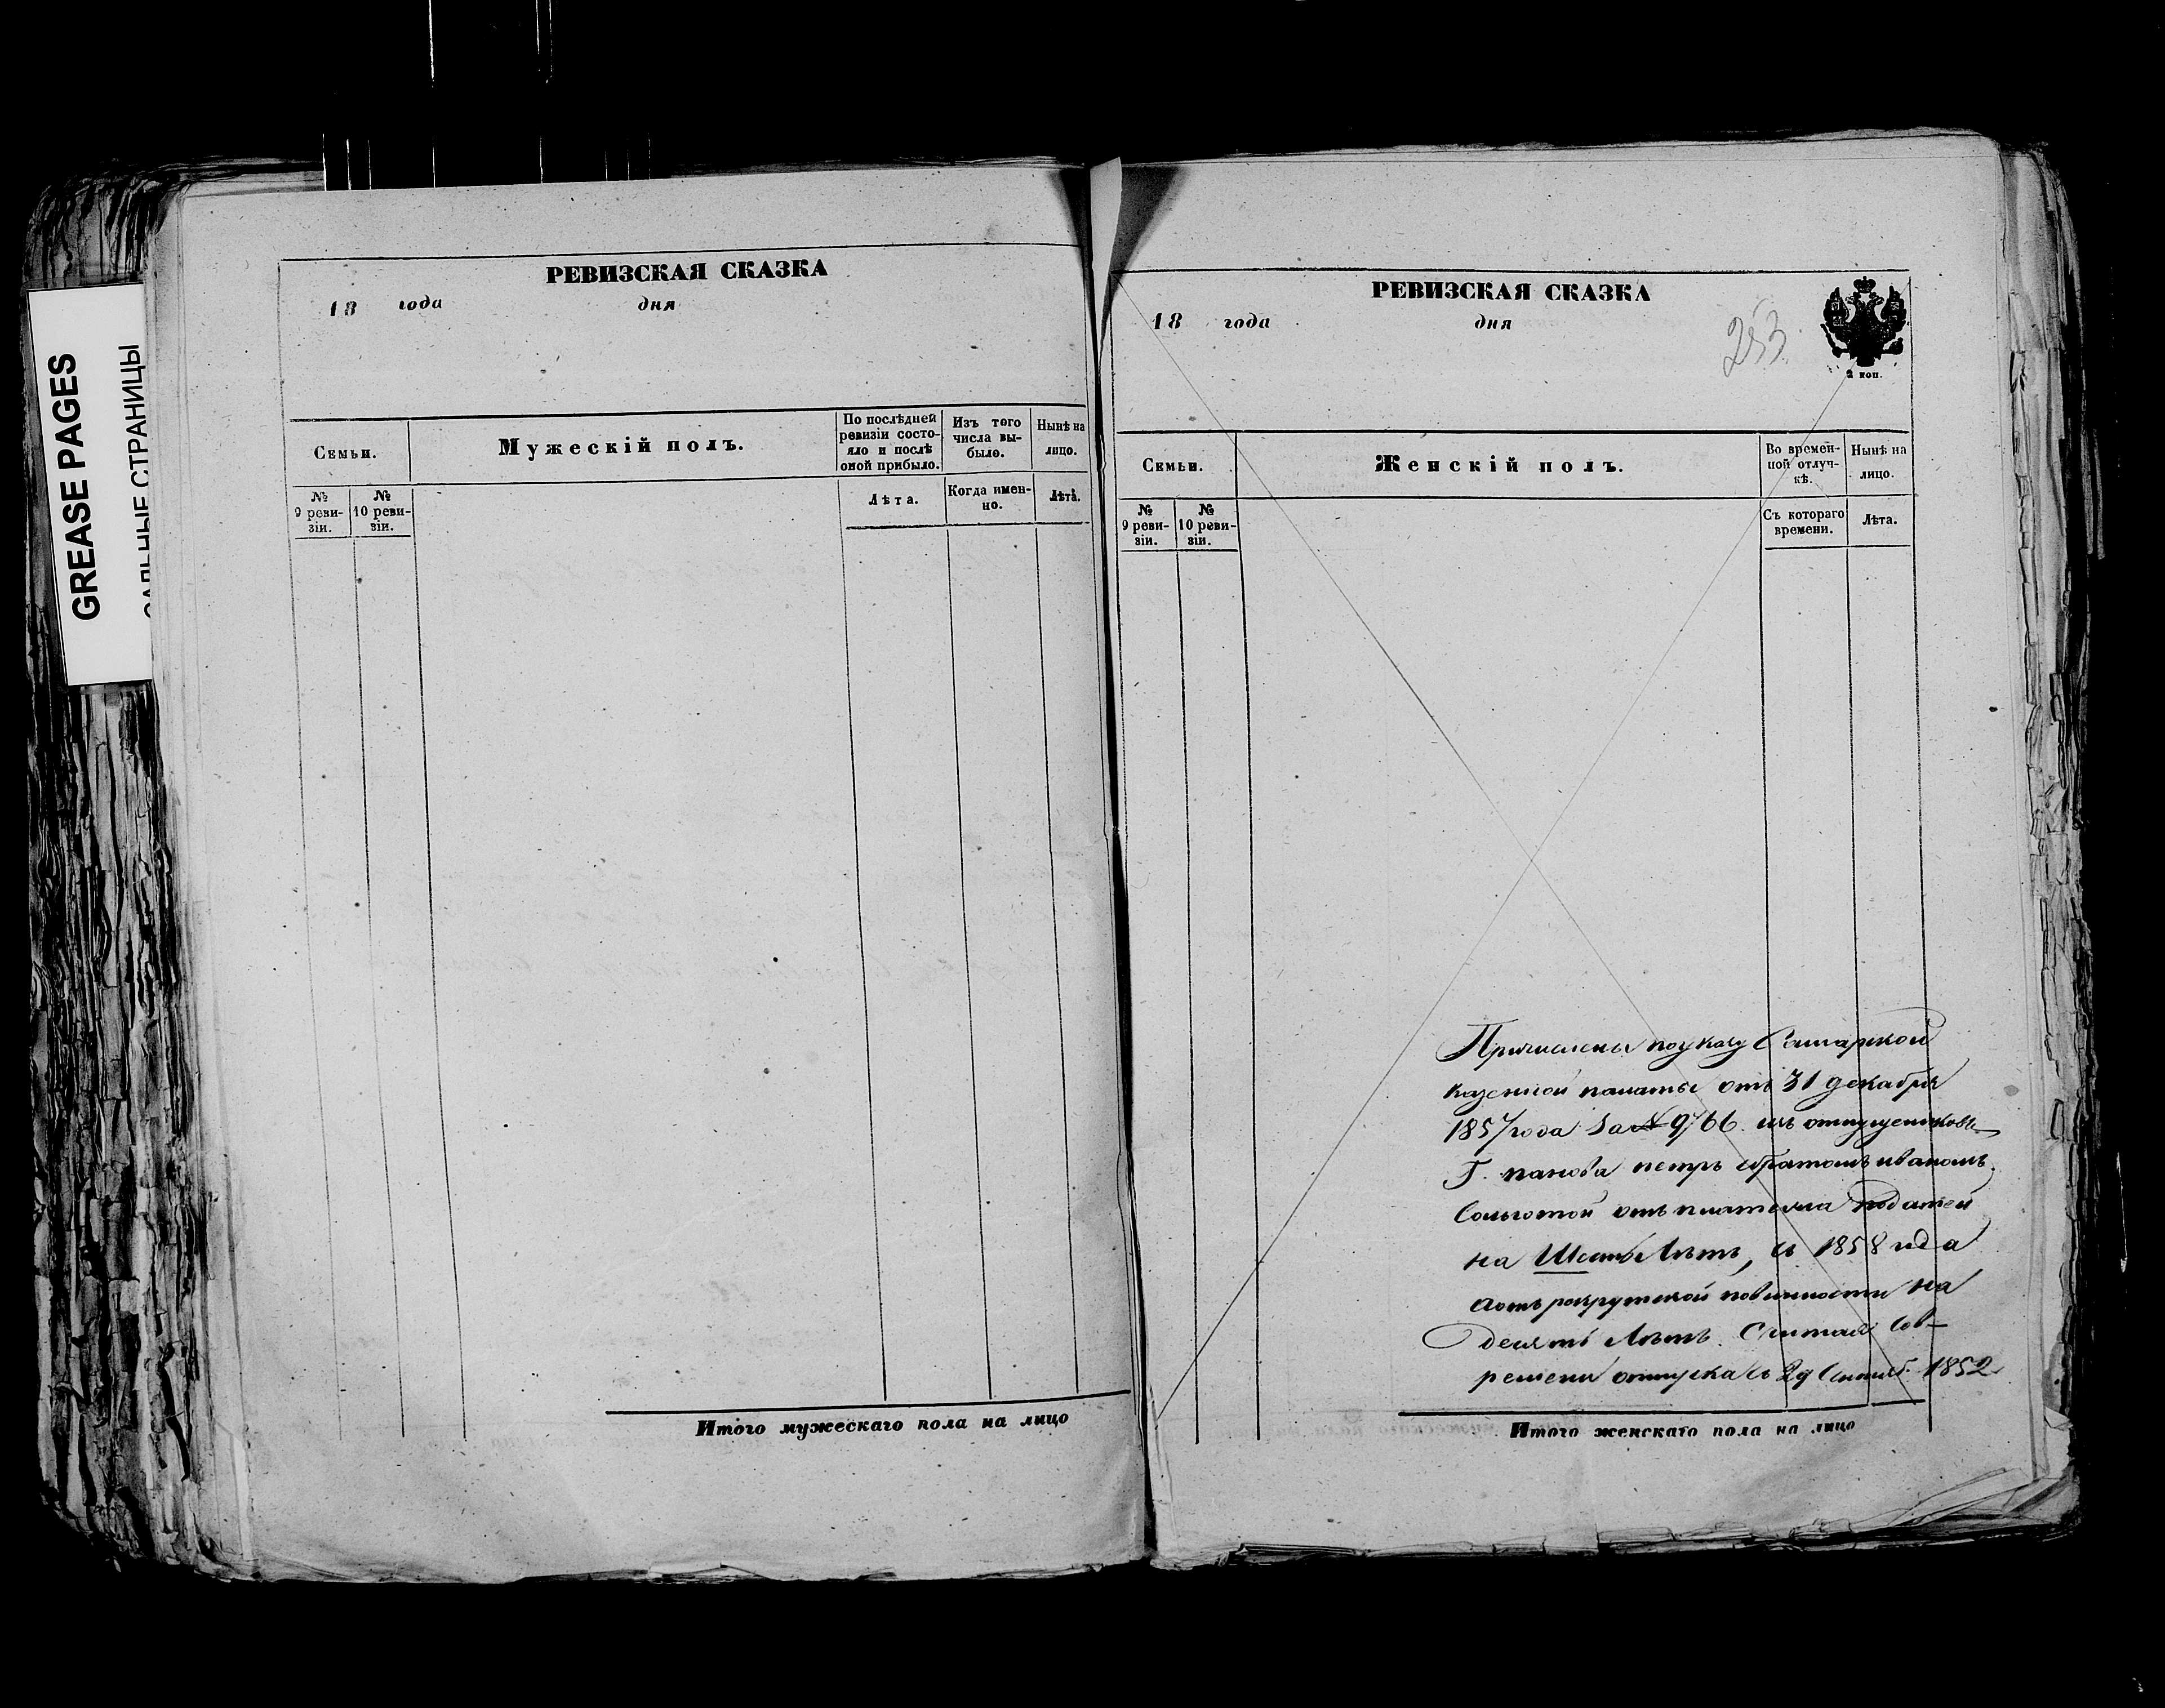 GREASE PAGES
САЛЬНЫЕ СТРАНИЦЫ
РЕВИЗСКАЯ СКАЗКА
18 года дня
Семьи.
Мужескій полъ.
По послѣдней
ревизіи состо-
яло и послѣ
оной прибыло.
Изъ того
числа вы-
было.
Нынѣ на
лицо.
№
9 реви-
зіи.
№
10 реви-
зіи.
Лѣта.
Когда имен-
но.
Лѣта.
Итого мужескаго пола на лицо
РЕВИЗСКАЯ СКАЗКА
18 года дня
253
2 коп.
Семьи.
Женскій полъ.
Во времен-
ной отлуч-
кѣ.
Нынѣ на
лицо.
№
9 реви-
зіи.
№
10 реви-
зіи.
Съ котораго
времени.
Лѣта.
Причислены по указу Самарской
казенной палаты отъ 31 декабря
1857 года за № 9766 изъ отпущенниковъ
Г. панова петръ сбратомъ иваномъ
Сольготой отъ платежа податей
на Шесть Лѣтъ, съ 1858 года
а отъ рекрутской повинности на
десять Лѣтъ. Считая сов-
ремени отпуска съ 29 1852
Итого женскаго пола на лицо